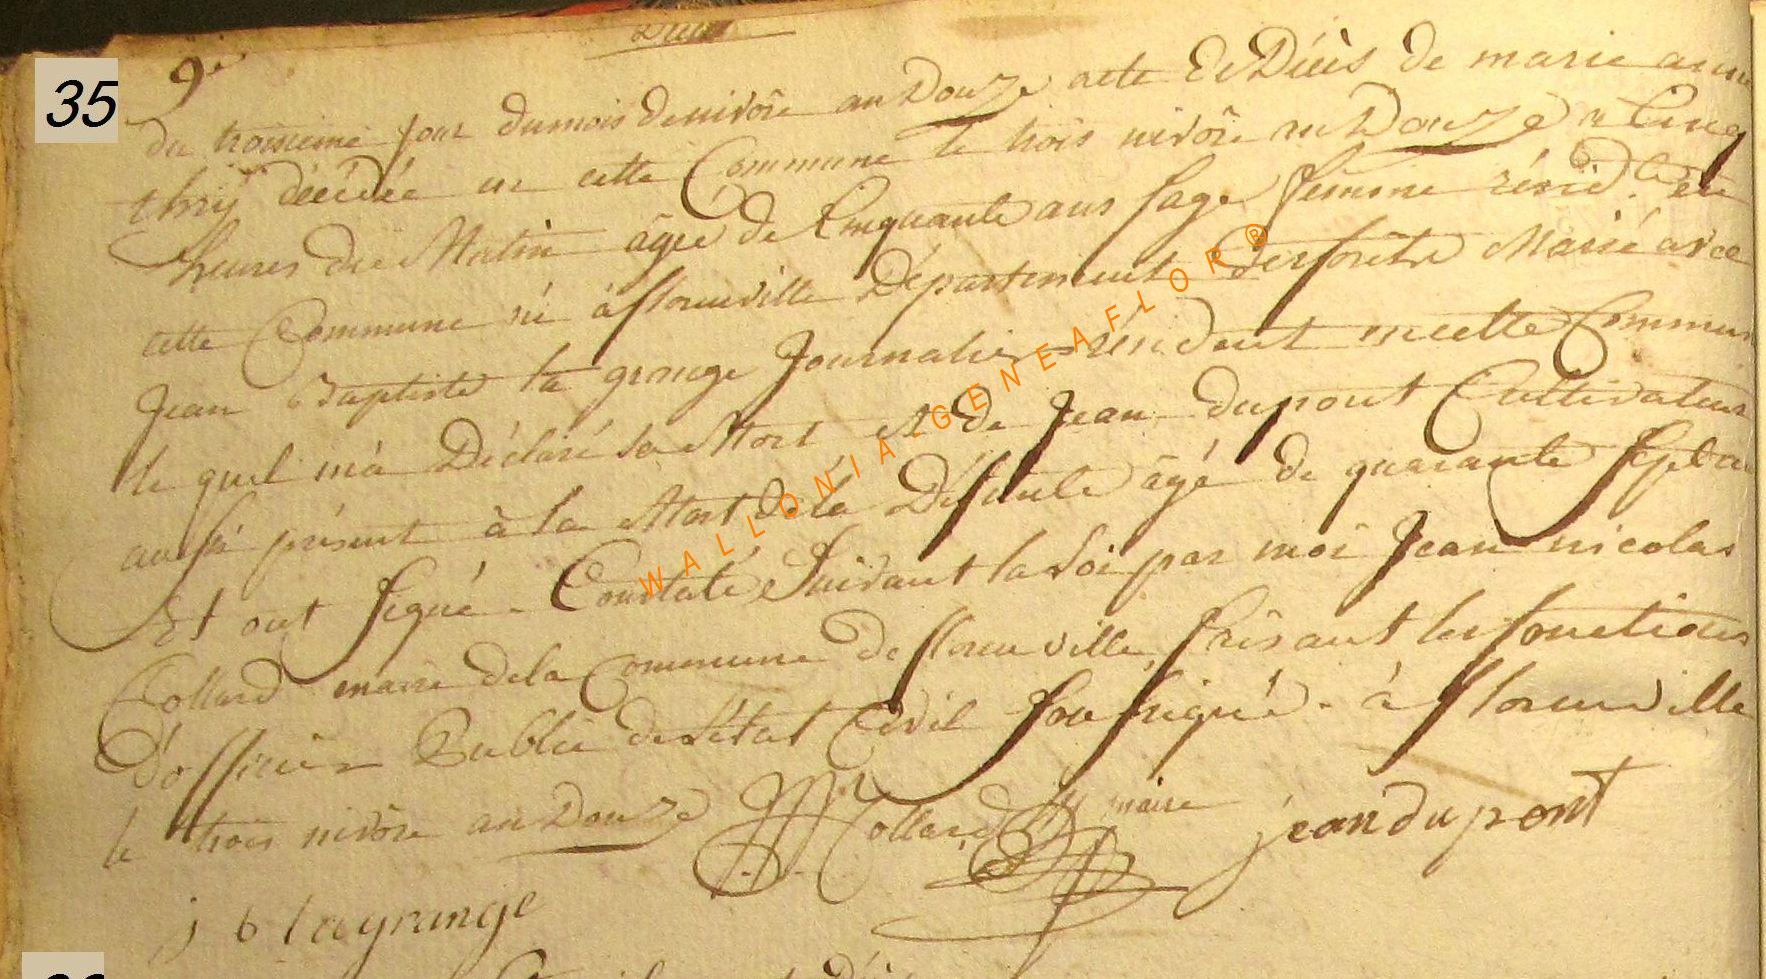 35
9e
du troisieme jour dumois denivôse an Douze acte de Décès de marie anne
thiry décédée en cette Commune le trois nivôse an Douze a Cinq
heures du Matin âgée de Cinquante ans sage femme résid. te en
cette Commune né à florenville Département desforêts Marié avec
Jean Baptiste la grange Journalier résidant encette Commune
le quel m'a Déclaré sa Mort et de Jean dupont Cultivateur
aussi présent à la Mort de la Défunte âgé de quarante sept an
Et ont signé. Constaté Suivant la Loi par moi Jean nicolas
Collard maire dela Commune de florenville faisant les fonctions
D'officier Public de l'état Civil sousigné. à florenville
le trois nivôse an Douze JN Collard maire jean dupont
j b lagrange
WALLONIA-GENEAFLOR®